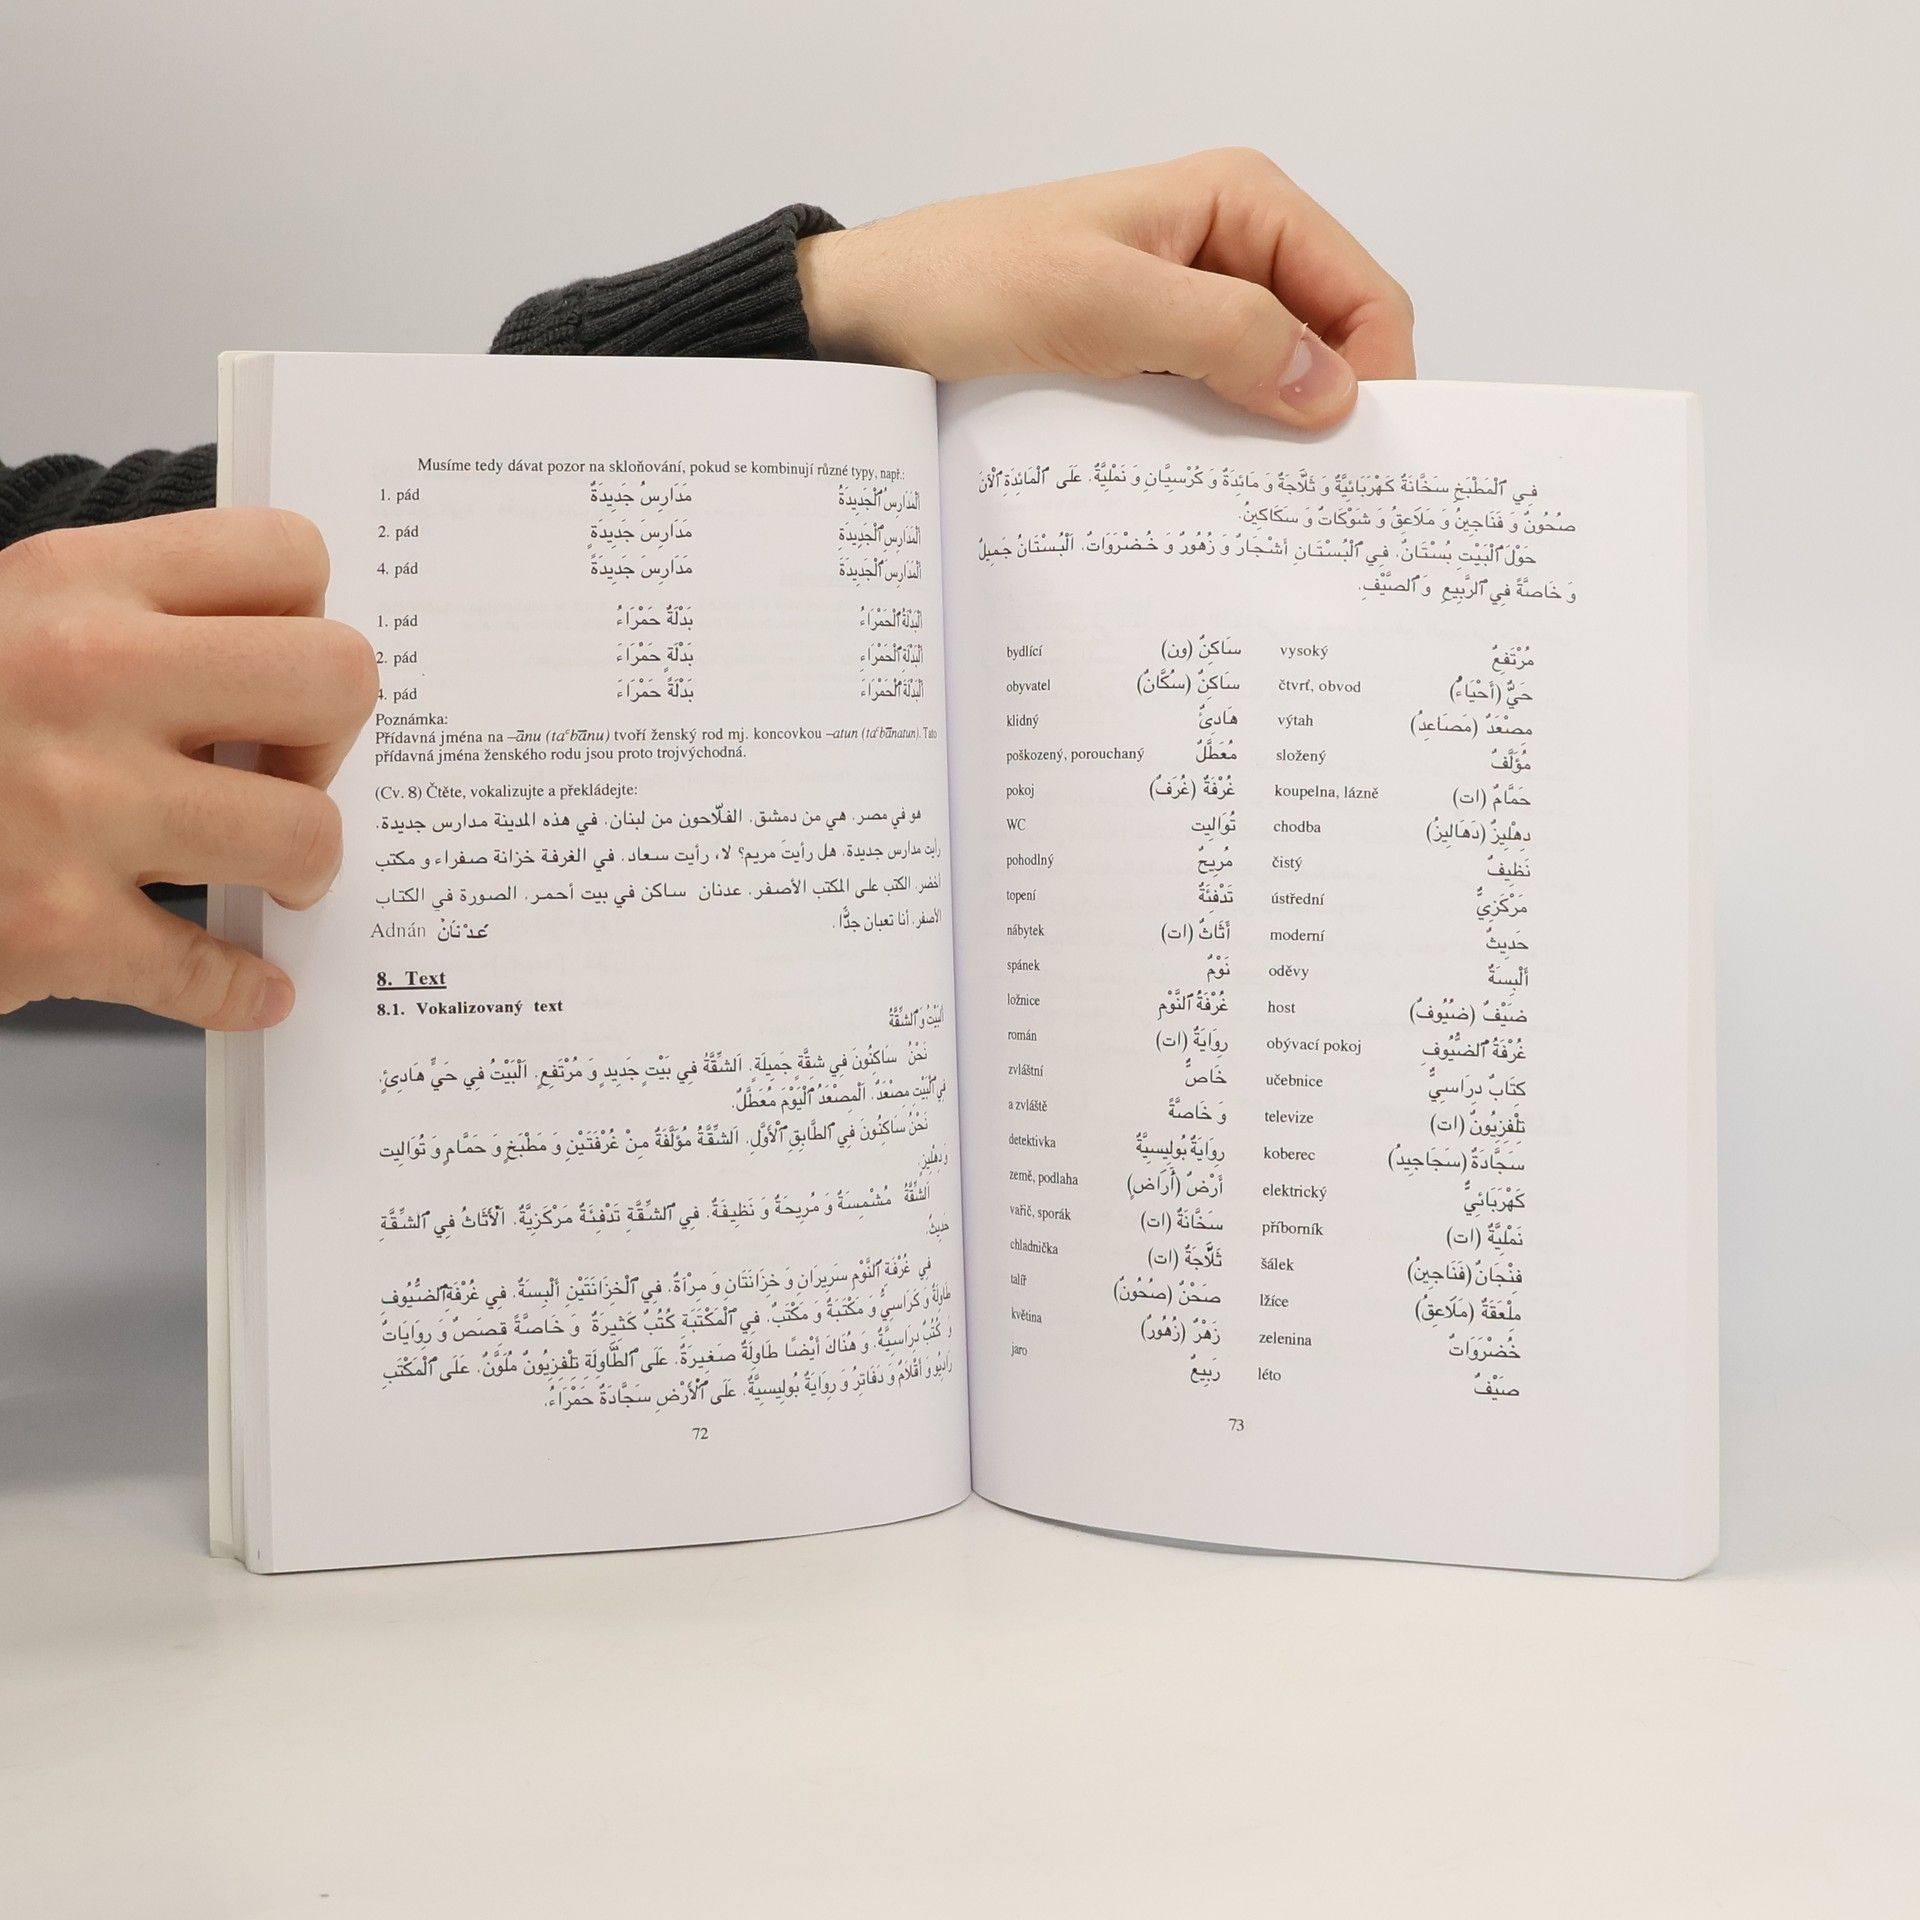 Musíme tedy dávat pozor na skloňování, pokud se kombinují různé typy, např.:
1. pád مَدَارِسُ جَدِيدَةٌ اَلْمَدَارِسُ ٱلْجَدِيدَةُ
2. pád مَدَارِسَ جَدِيدَةٍ اَلْمَدَارِسِ ٱلْجَدِيدَةِ
4. pád مَدَارِسَ جَدِيدَةً اَلْمَدَارِسَ ٱلْجَدِيدَةَ
1. pád بَدْلَةٌ حَمْرَاءُ اَلْبَدْلَةُ ٱلْحَمْرَاءُ
2. pád بَدْلَةٍ حَمْرَاءَ اَلْبَدْلَةِ ٱلْحَمْرَاءِ
4. pád بَدْلَةً حَمْرَاءَ اَلْبَدْلَةَ ٱلْحَمْرَاءَ
Poznámka:
Přídavná jména na –ānu (taᶜbānu) tvoří ženský rod mj. koncovkou –atun (taᶜbānatun). Tato
přídavná jména ženského rodu jsou proto trojvýchodná.
(Cv. 8) Čtěte, vokalizujte a překládejte:
هو في مصر. هي من دمشق. الفلّاحون من لبنان. في هذه المدينة مدارس جديدة.
رأيت مدارس جديدة. هل رأيتَ مريم؟ لا، رأيت سعاد. في الغرفة خزانة صفراء و مكتب
أخضر. الكتب على المكتب الأصفر. عدنان ساكن في بيت أحمر. الصورة في الكتاب
الأصفر. أنا تعبان جدًّا.
Adnán عَدْنَانُ
8. Text
8.1. Vokalizovaný text
اَلْبَيْتُ وَ ٱلشِّقَّةُ
نَحْنُ سَاكِنُونَ فِي شِقَّةٍ جَمِيلَةٍ. اَلشِّقَّةُ فِي بَيْتٍ جَدِيدٍ وَ مُرْتَفِعٍ. اَلْبَيْتُ فِي حَيٍّ هَادِئٍ.
فِي ٱلْبَيْتِ مِصْعَدٌ. اَلْمِصْعَدُ ٱلْيَوْمَ مُعَطَّلٌ.
نَحْنُ سَاكِنُونَ فِي ٱلطَّابِقِ ٱلْأَوَّلِ. اَلشِّقَّةُ مُؤَلَّفَةٌ مِنْ غُرْفَتَيْنِ وَ مَطْبَخٍ وَ حَمَّامٍ وَ تُوَالِيت
وَ دِهْلِيزٍ
اَلشِّقَّةُ مُشْمِسَةٌ وَ مُرِيحَةٌ وَ نَظِيفَةٌ. فِي ٱلشِّقَّةِ تَدْفِئَةٌ مَرْكَزِيَّةٌ. اَلْأَثَاثُ فِي ٱلشِّقَّةِ
حَدِيثٌ.
فِي غُرْفَةِ ٱلنَّوْمِ سَرِيرَانِ وَ خِزَانَتَانِ وَ مِرْآةٌ. فِي ٱلْخِزَانَتَيْنِ أَلْبِسَةٌ. فِي غُرْفَةِ ٱلضُّيُوفِ
طَاوِلَةٌ وَ كَرَاسِيُّ وَ مَكْتَبَةٌ وَ مَكْتَبٌ. فِي ٱلْمَكْتَبَةِ كُتُبٌ كَثِيرَةٌ وَ خَاصَّةً قِصَصٌ وَ رِوَايَاتٌ
وَ كُتُبٌ دِرَاسِيَّةٌ. وَ هُنَاكَ أَيْضًا طَاوِلَةٌ صَغِيرَةٌ. عَلَى ٱلطَّاوِلَةِ تِلْفِزِيُونٌ مُلَوَّنٌ. عَلَى ٱلْمَكْتَبِ
رَادِيُو وَ أَقْلَامٌ وَ دَفَاتِرُ وَ رِوَايَةٌ بُولِيسِيَّةٌ. عَلَى ٱلْأَرْضِ سَجَّادَةٌ حَمْرَاءُ.
72
فِي ٱلْمَطْبَخِ سَخَّانَةٌ كَهْرَبَائِيَّةٌ وَ ثَلَّاجَةٌ وَ مَائِدَةٌ وَ كُرْسِيَّانِ وَ نَمْلِيَّةٌ. عَلَى ٱلْمَائِدَةِ ٱلْآنَ
صُحُونٌ وَ فَنَاجِينُ وَ مَلَاعِقُ وَ شَوْكَاتٌ وَ سَكَاكِينُ.
حَوْلَ ٱلْبَيْتِ بُسْتَانٌ. فِي ٱلْبُسْتَانِ أَشْجَارٌ وَ زُهُورٌ وَ خُضْرَوَاتٌ. اَلْبُسْتَانُ جَمِيلٌ
وَ خَاصَّةً فِي ٱلرَّبِيعِ وَ ٱلصَّيْفِ.
bydlící سَاكِنٌ (ون) vysoký مُرْتَفِعٌ
obyvatel سَاكِنٌ (سُكَّانٌ) čtvrť, obvod حَيٌّ (أَحْيَاءٌ)
klidný هَادِئٌ výtah مِصْعَدٌ (مَصَاعِدُ)
poškozený, porouchaný مُعَطَّلٌ složený مُؤَلَّفٌ
pokoj غُرْفَةٌ (غُرَفٌ) koupelna, lázně حَمَّامٌ (ات)
WC تُوَالِيت chodba دِهْلِيزٌ (دَهَالِيزُ)
pohodlný مُرِيحٌ čistý نَظِيفٌ
topení تَدْفِئَةٌ ústřední مَرْكَزِيٌّ
nábytek أَثَاثٌ (ات) moderní حَدِيثٌ
spánek نَوْمٌ oděvy أَلْبِسَةٌ
ložnice غُرْفَةُ ٱلنَّوْمِ host ضَيْفٌ (ضُيُوفٌ)
román رِوَايَةٌ (ات) obývací pokoj غُرْفَةُ ٱلضُّيُوفِ
zvláštní خَاصٌّ učebnice كِتَابٌ دِرَاسِيٌّ
a zvláště وَ خَاصَّةً televize تِلْفِزِيُونٌ (ات)
detektivka رِوَايَةٌ بُولِيسِيَّةٌ koberec سَجَّادَةٌ (سَجَاجِيدُ)
země, podlaha أَرْضٌ (أَرَاضٍ) elektrický كَهْرَبَائِيٌّ
vařič, sporák سَخَّانَةٌ (ات) příborník نَمْلِيَّةٌ (ات)
chladnička ثَلَّاجَةٌ (ات) šálek فِنْجَانٌ (فَنَاجِينُ)
talíř صَحْنٌ (صُحُونٌ) lžíce مِلْعَقَةٌ (مَلَاعِقُ)
květina زَهْرٌ (زُهُورٌ) zelenina خُضْرَوَاتٌ
jaro رَبِيعٌ léto صَيْفٌ
73